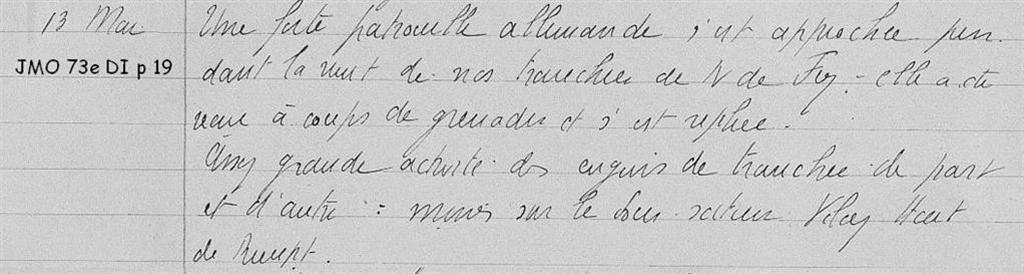 13 Mai
JMO 73e DI p 19
Une forte patrouille allemande s'est approchée pen-
dant la nuit de nos tranchées de N de Fey - elle a été
à coups de grenades et s'est repliée.
Assez grande activité des engins de tranchée de part
et d'autre : mines sur le sous-secteur Vilcey Haut
de Rupt.